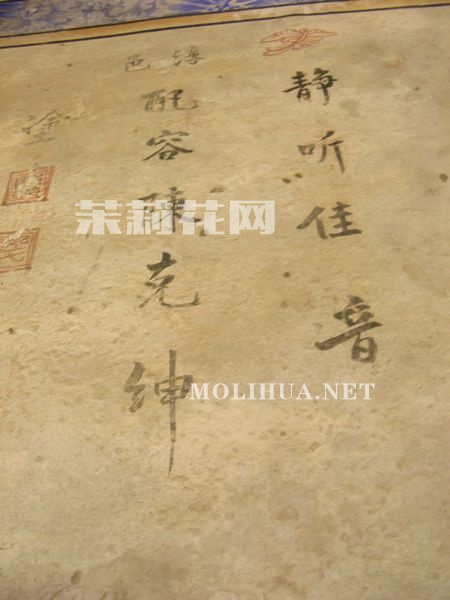 静听佳音
邑
配容陳克紳
塗
茉莉花网
MOLIHUA.NET